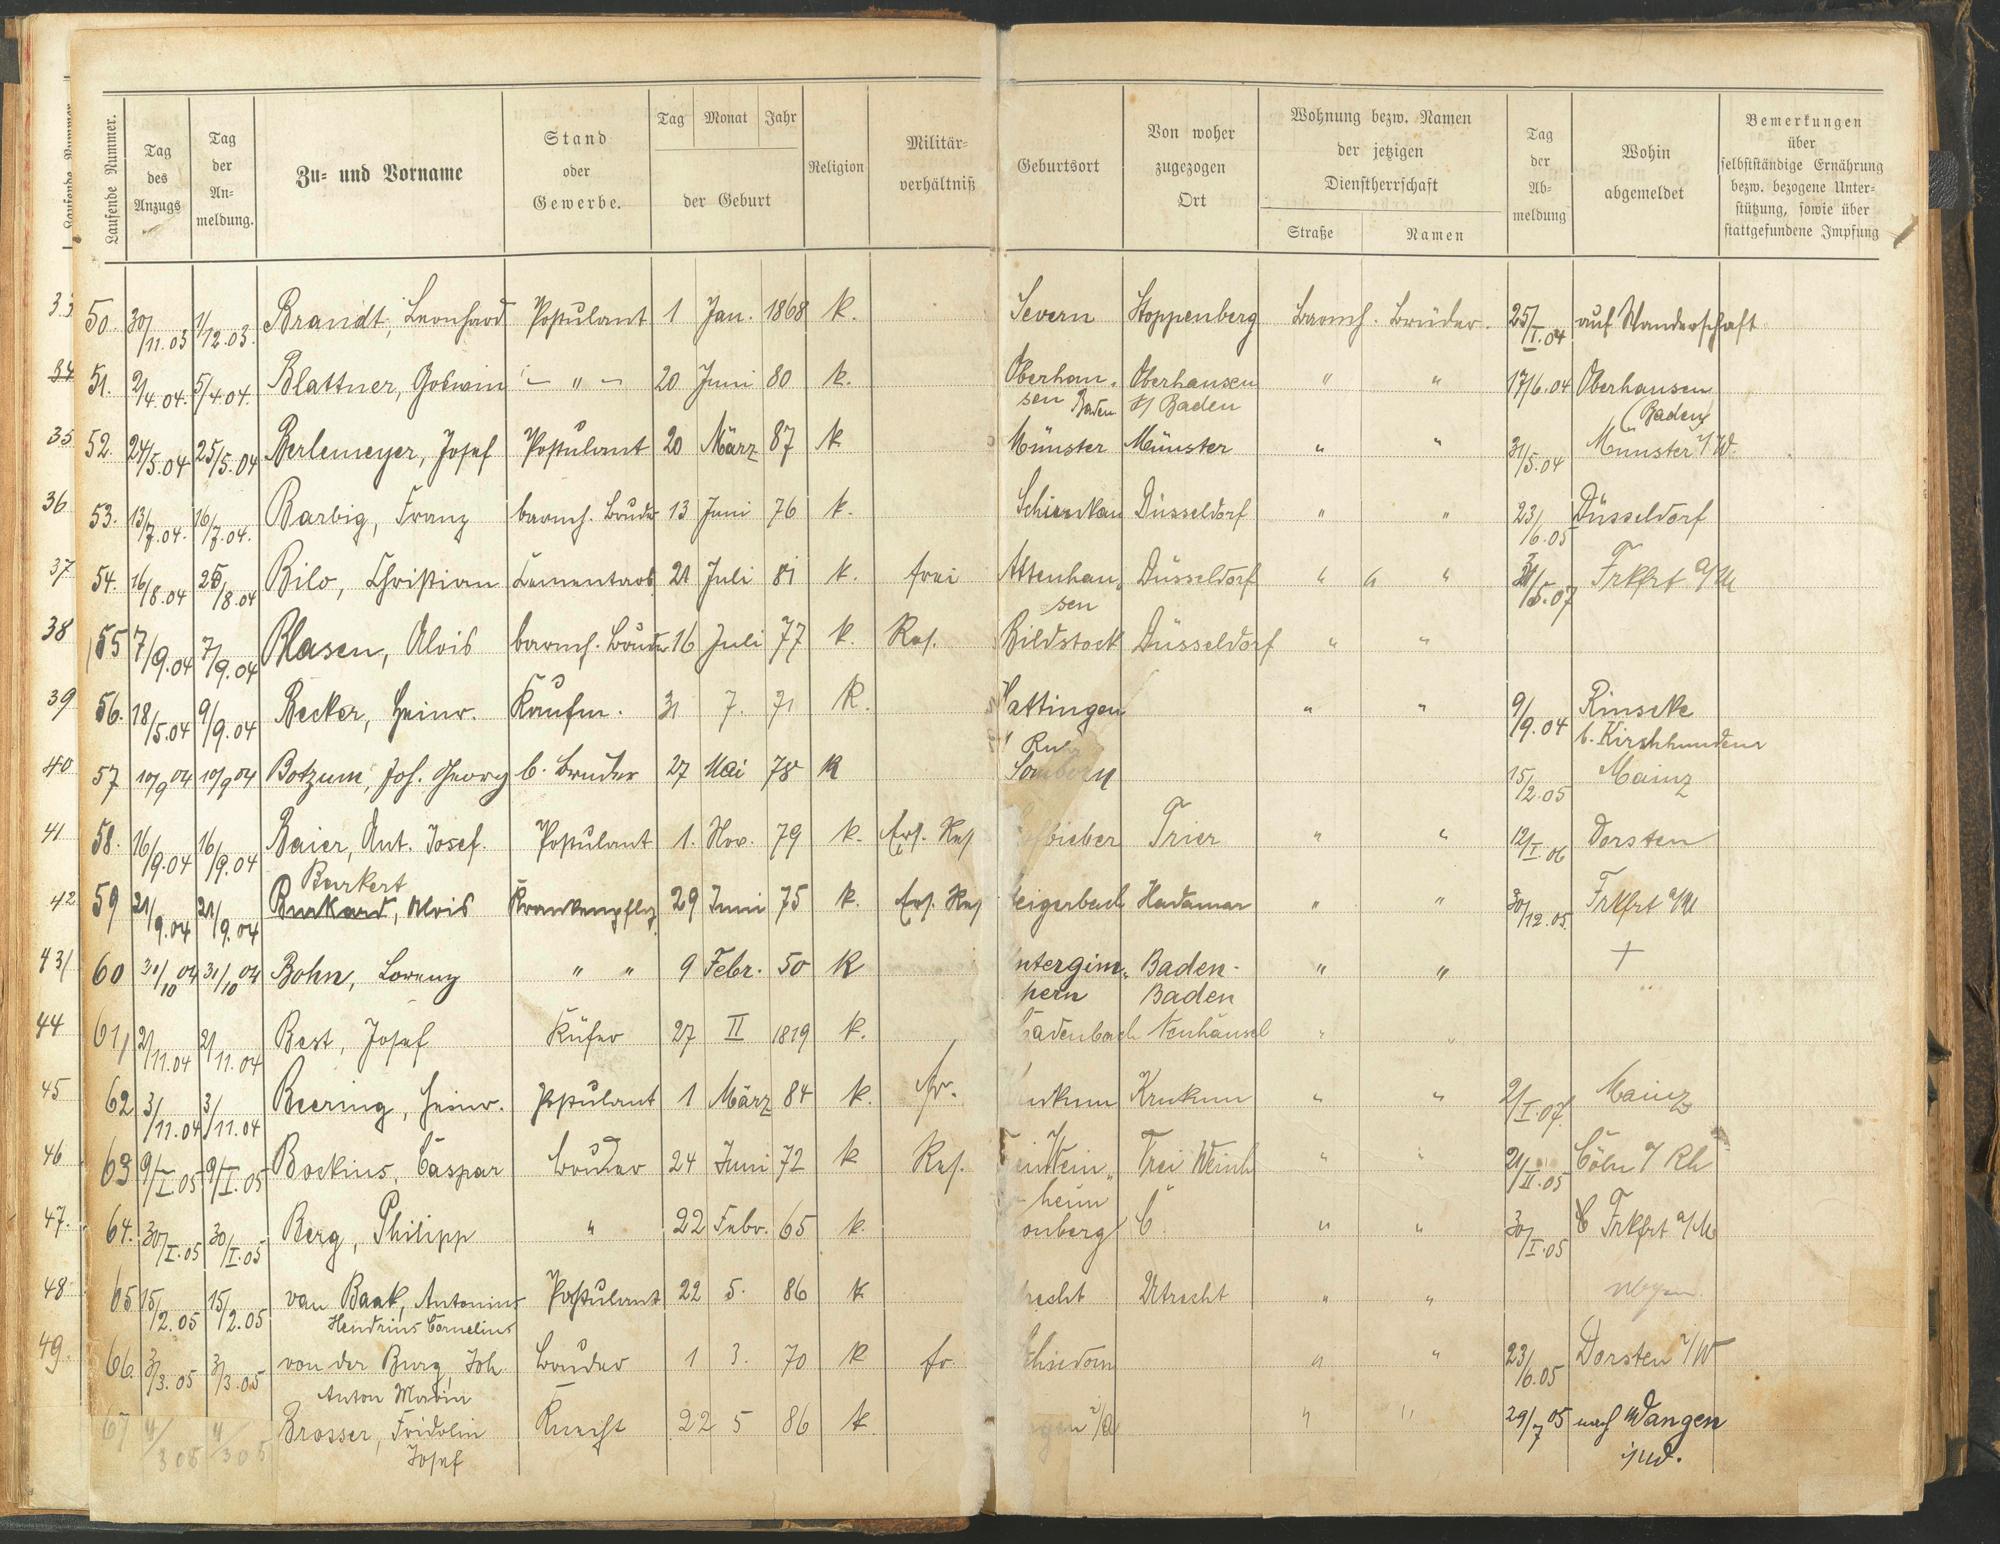 Laufende Nummer.
Tag des Anzugs
Tag der An-meldung.
Zu- und Vorname
Stand oder Gewerbe.
Tag Monat Jahr der Geburt
Religion
Militär-verhältniß
Geburtsort
Von woher zugezogen Ort
Wohnung bezw. Namen der jetzigen Dienstherrschaft
Straße Namen
Tag der Ab-meldung
Wohin abgemeldet
Bemerkungen über selbstständige Ernährung bezw. bezogene Unter-stützung, sowie über stattgefundene Impfung
33 50. 30/11.03 1/12.03. Brandt, Leonhard Postulant 1 Jan. 1868 k. Severn Stoppenberg Barmh. Brüder. 25/I.04 auf Wanderschaft
34 51. 2/4.04. 5/4.04. Blattner, Godwin – " – 20 Juni 80 k. Oberhau- Oberhausen " " 17/6.04 Oberhausen
sen Baden Baden (Baden)
35 52. 24/5.04 25/5.04 Berlemeyer, Josef Postulant 20 März 87 k Münster Münster " " 31/5.04 Münster i/W.
36 53. 13/7.04. 16/7.04. Barbig, Franz barmh. Bruder 13 Juni 76 k. Düsseldorf " " 23/6.05 Düsseldorf
37 54. 16/8.04 25/8.04 Bilo, Christian 21 Juli 81 k. frei Attenhau- Düsseldorf " " " /5.07 Frkfrt a/M
sen
38 55 7/9.04 7/9.04 Blasen, Alois barmh. Bruder 16 Juli 77 k. Res. Bildstock Düsseldorf " "
39 56. 18/5.04 9/9.04 Becker, Heinr. Kaufm. 31 7. 71 K. Hattingen " " 9/9.04 Rinsecke
Ruhr b. Kirchhundem
40 57 10/9 04 10/9 04 Botzum, Joh. Georg b. Bruder 27 Mai 78 K Somborn 15/2.05 Mainz
41 58. 16/9.04 16/9.04 Baier, Ant. Josef. Postulant 1. Nov. 79 k. Ers. Res bieber Trier " " 12/I 06 Dorsten
Burkert
42 59 21/9.04 21/9.04 Burkard, Alois Krankenpfleg. 29 Juni 75 k. Ers. Res eigerbach Hadamar " " 30/12.05 Frkfrt a/M
43 60 31/10 04 31/10 04 Bohn, Lorenz " " 9 Febr. 50 K ntergim- Baden- " " +
pern Baden
44 61, 2/11.04 2/11.04 Best, Josef Küfer 27 II 1819 k. Cadenbach Neuhäusel " "
45 62 3/11.04 3/11.04 Beering, Heinr. Postulant 1 März 84 k. fr. Krukum " " 2/I.07. Mainz
46 63 9/I.05 9/I.05 Bockius, Caspar Bruder 24 Juni 72 k Res. Wein- Frei Weinh " " 21/II.05 Cöln a/Rh
heim
47. 64. 30/I.05 30/I.05 Berg, Philipp " 22 Febr. 65 k. onberg C. " " 30/I.05 Frkfrt a/M
48 65 15/2.05 15/2.05 van Baak, Antonius Postulant 22 5. 86 k recht Utrecht " "
Hendrius Cornelius
49. 66. 3/3.05 3/3.05 von der Burg, Joh. Bruder 1 3. 70 k fr. Schiedom " " 23/6.05 Dorsten i/W
Anton Maria
67 4/3 05 4/3 05 Brosser, Fridolin Knecht 22 5 86 k gen i/A " " 29/7 05 nach Wangen
Josef